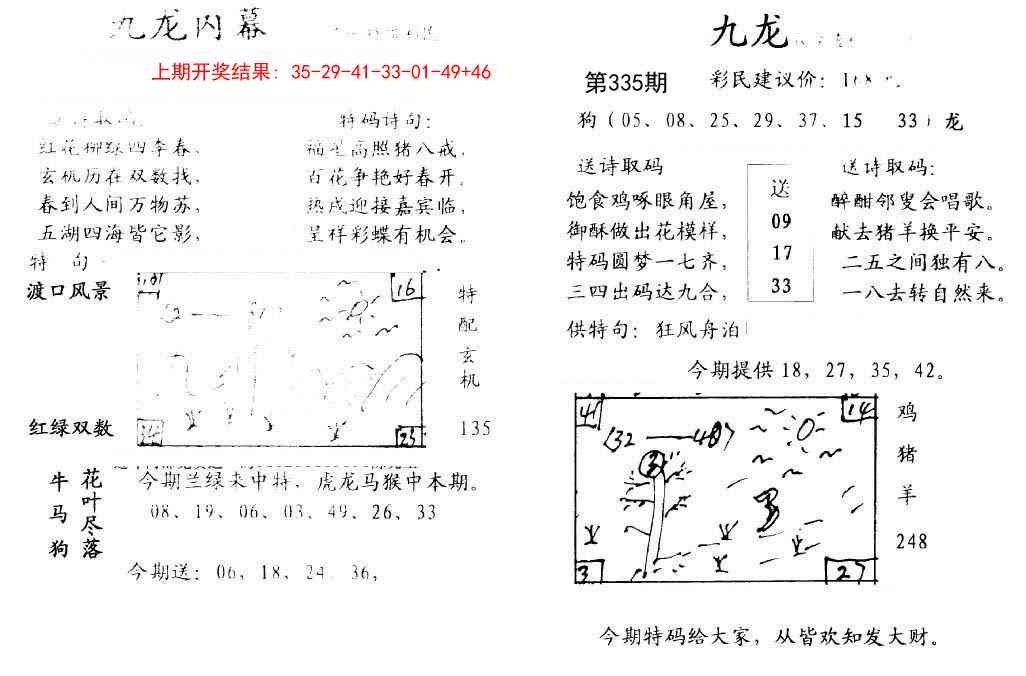 九龙内幕
上期开奖结果：35-29-41-33-01-49+46
红花柳绿四季春，
玄机历在双数找，
春到人间万物苏，
五湖四海皆它影，
特码诗句：
福星高照猪八戒，
百花争艳好春开，
热戌迎接嘉宾临，
呈祥彩蝶有机会。
特 句
渡口风景
红绿双数
16
23
特
配
玄
机
135
牛
马
狗
花
叶
尽
落
今期兰绿来中特，虎龙马猴中本期。
08、19、06、03、49、26、33
今期送：06，18、24、36，
九龙
第335期
彩民建议价：
狗（05、08、25、29、37、15 33）龙
送诗取码
饱食鸡啄眼角屋，
御酥做出花模样，
特码圆梦一七齐，
三四出码达九合，
送
09
17
33
送诗取码：
醉酣邻叟会唱歌。
献去猪羊换平安。
二五之间独有八。
一八去转自然来。
供特句：狂风舟泊
今期提供18，27，35，42。
41
14
3
27
鸡
猪
羊
248
今期特码给大家，从皆欢知发大财。